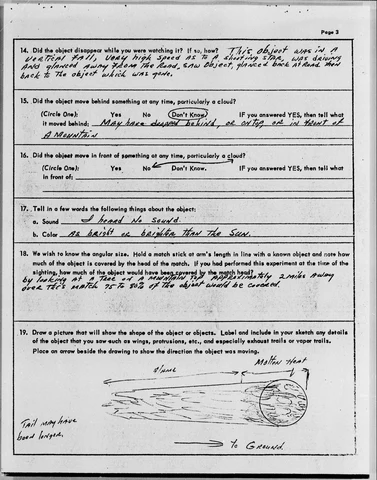 Page 3
14. Did the object disappear while you were watching it? If so, how? This object was in a
vertical fall, very high speed as to a shooting star, was driving
and glanced away from the road, saw object, glanced back at road then
back to the object which was gone.
15. Did the object move behind something at any time, particularly a cloud?
(Circle One): Yes No Don't Know. IF you answered YES, then tell what
it moved behind: May have dropped behind, or on top or in front of
a mountain
16. Did the object move in front of something at any time, particularly a cloud?
(Circle One): Yes No Don't Know. IF you answered YES, then tell what
in front of:
17. Tell in a few words the following things about the object:
a. Sound I heard no sound.
b. Color As bright or brighter than the sun.
18. We wish to know the angular size. Hold a match stick at arm's length in line with a known object and note how
much of the object is covered by the head of the match. If you had performed this experiment at the time of the
sighting, how much of the object would have been covered by the match head?
by looking at a tree on a mountain top approximately 2 miles away
over this match 75 to 80% of the object would be covered.
19. Draw a picture that will show the shape of the object or objects. Label and include in your sketch any details
of the object that you saw such as wings, protrusions, etc., and especially exhaust trails or vapor trails.
Place an arrow beside the drawing to show the direction the object was moving.
Molten Heat
flame
Tail may have
been longer.
To Ground